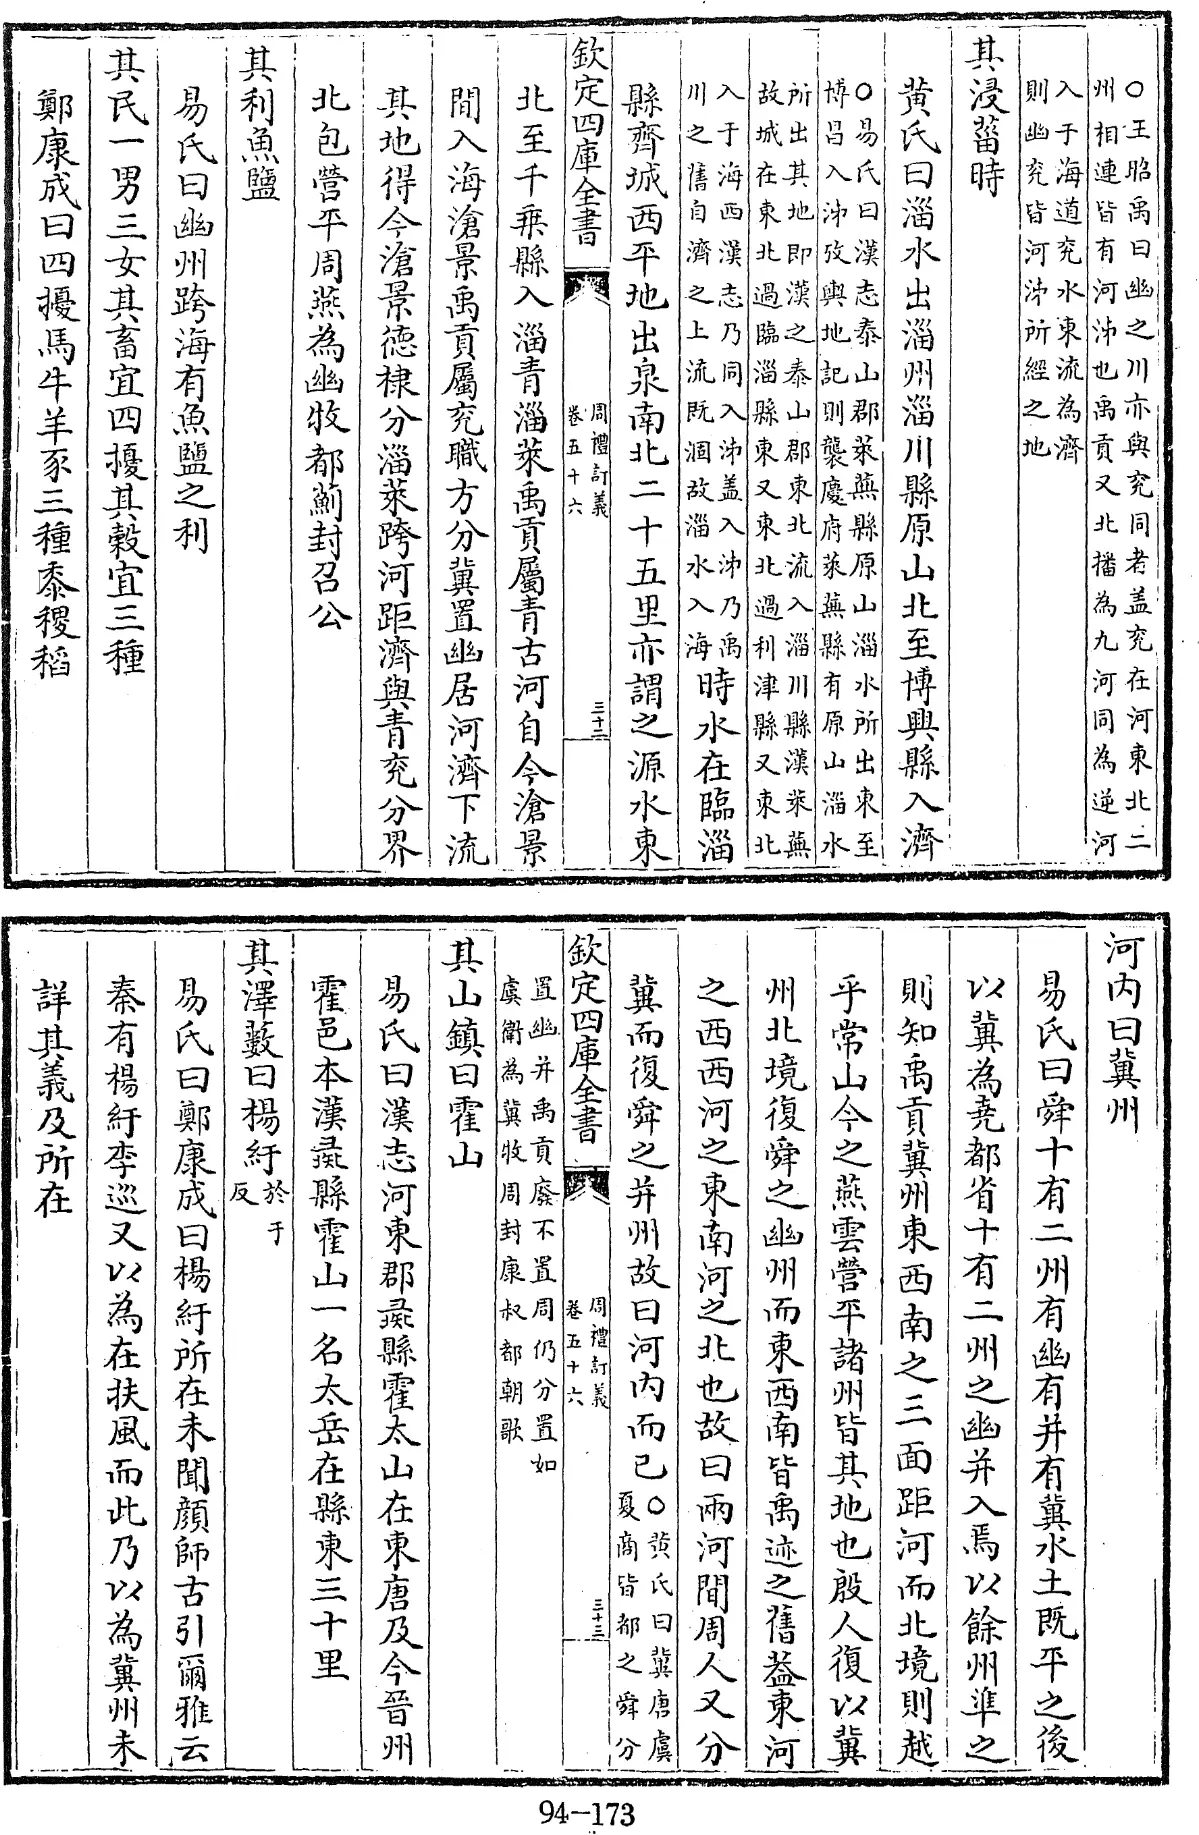 ○王昭禹曰幽之川亦與兖同者盖兖在河東北二
州相連皆有河泲也禹貢又北播為九河同為逆河
入于海道兖水東流為濟
則幽兖皆河泲所經之地
其浸菑時
黄氏曰淄水出淄州淄川縣原山北至博興縣入濟
○易氏曰漢志泰山郡萊蕪縣原山淄水所出東至
博昌入泲攷輿地記則襲慶府萊蕪縣有原山淄水
所出其地即漢之泰山郡東北流入淄川縣漢萊蕪
故城在東北過臨淄縣東又東北過利津縣又東北
入于海西漢志乃同入泲盖入泲乃禹
川之舊自濟之上流既涸故淄水入海
時水在臨淄
縣齊城西平地出泉南北二十五里亦謂之源水東
欽定四庫全書
周禮訂義
卷五十六
三十二
北至千乗縣入淄青淄萊禹貢屬青古河自今滄景
間入海滄景禹貢屬兖職方分冀置幽居河濟下流
其地得今滄景德棣分淄萊跨河距濟與青兖分界
北包營平周燕為幽牧都薊封召公
其利魚鹽
易氏曰幽州跨海有魚鹽之利
其民一男三女其畜宜四擾其穀宜三種
鄭康成曰四擾馬牛羊豕三種黍稷稻
河内曰冀州
易氏曰舜十有二州有幽有并有冀水土既平之後
以冀為堯都省十有二州之幽并入焉以餘州準之
則知禹貢冀州東西南之三面距河而北境則越
乎常山今之燕雲營平諸州皆其地也殷人復以冀
州北境復舜之幽州而東西南皆禹迹之舊葢東河
之西西河之東南河之北也故曰兩河間周人又分
冀而復舜之并州故曰河内而已
○黄氏曰冀唐虞
夏商皆都之舜分
欽定四庫全書
周禮訂義
卷五十六
三十三
置幽并禹貢廢不置周仍分置如
虞衛為冀牧周封康叔都朝歌
其山鎮曰霍山
易氏曰漢志河東郡彘縣霍太山在東唐及今晉州
霍邑本漢彘縣霍山一名太岳在縣東三十里
其澤藪曰楊紆
於于
反
易氏曰鄭康成曰楊紆所在未聞顔師古引爾雅云
秦有楊紆李巡又以為在扶風而此乃以為冀州未
詳其義及所在
94-173